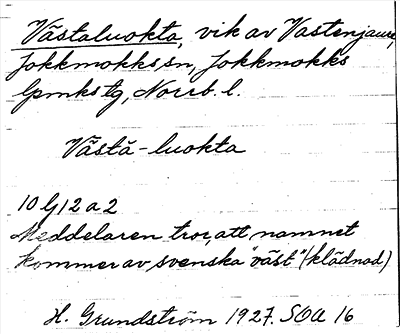 Västaluokta, vik av Vastenjaure,
Jokkmokks sn, Jokkmokks
lpmks tg, Norrb. l.
Västā-luokta
10 G 12 a 2
Meddelaren tror, att namnet
kommer av svenska "väst" (klädnad)
H. Grundström 1927. SOA 16